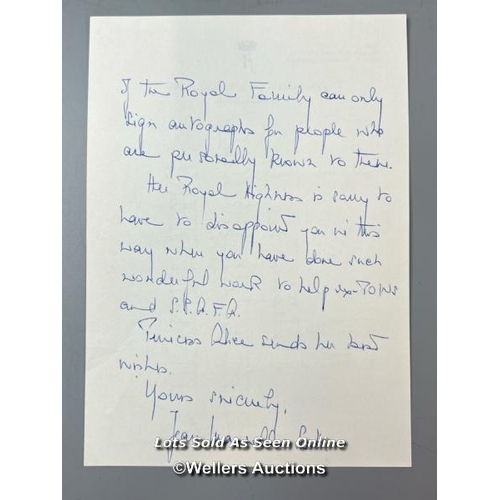 of the Royal Family can only
sign autographs for people who
are personally known to them.
Her Royal Highness is sorry to
have to disappoint you in this
way when you have done such
wonderful work to help ex-POWs
and S.S.A.F.A.
Princess Alice sends her best
wishes.
Yours sincerely,
Jean
Lots Sold As Seen Online
©Wellers Auctions